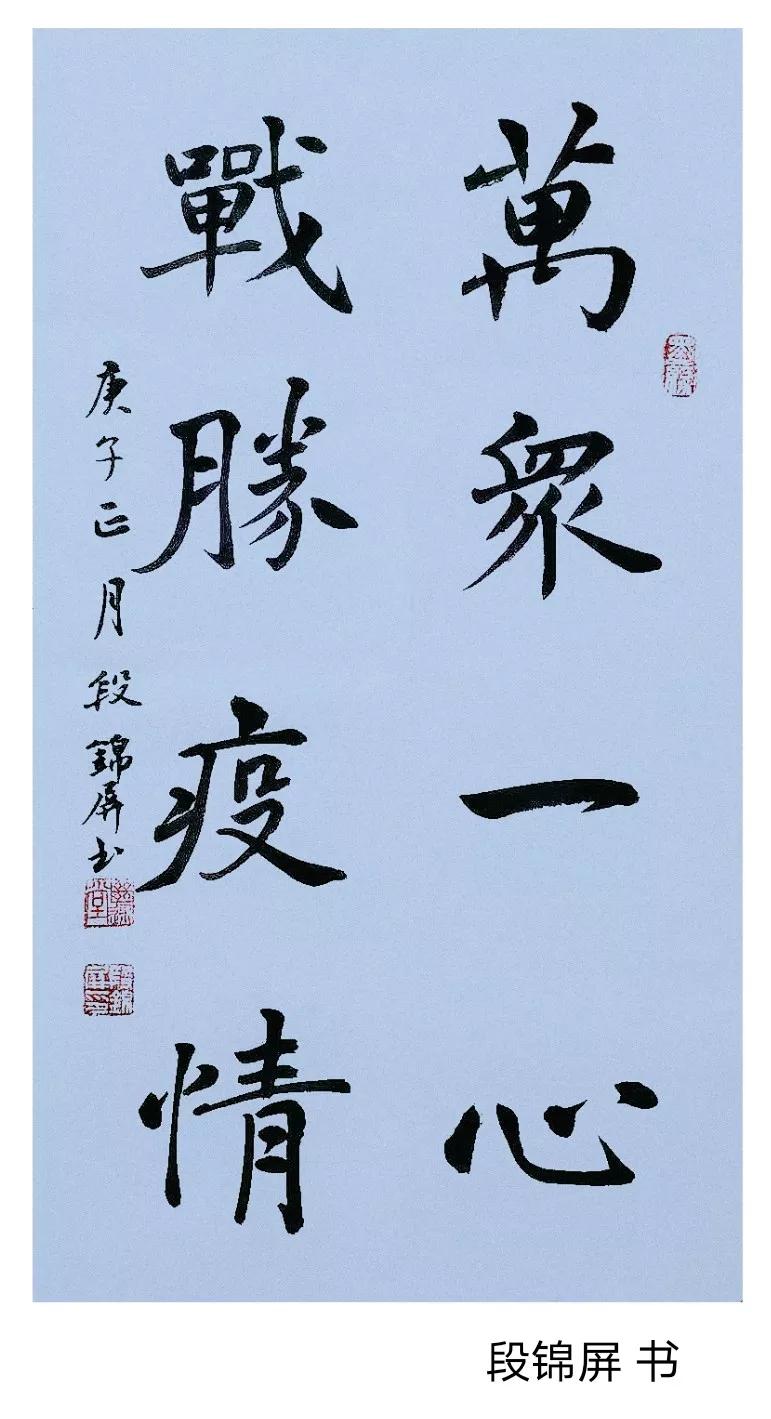 萬眾一心
戰勝疫情
庚子正月段錦屏书
段锦屏 书